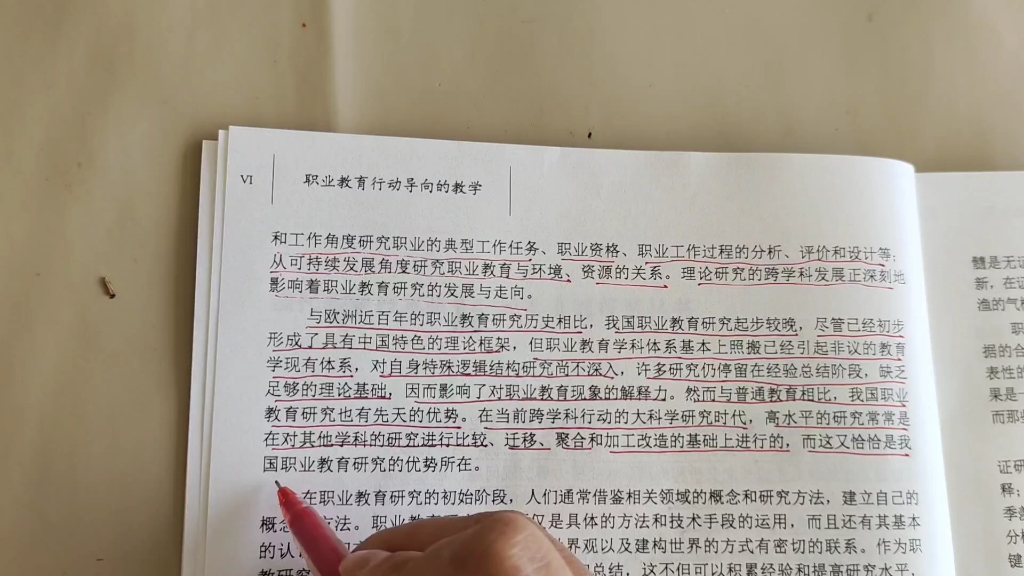 VI
职业教育行动导向的教学
和工作角度研究职业的典型工作任务、职业资格、职业工作过程的分析、评价和设计等;
从可持续发展角度研究职业教育与环境、资源的关系。理论研究的跨学科发展正深刻地
影响着职业教育研究的发展与走向。
与欧洲近百年的职业教育研究历史相比，我国职业教育研究起步较晚，尽管已经初步
形成了具有中国特色的理论框架，但职业教育学科体系基本上照搬已经引起非议的教育
学现有体系，对自身特殊逻辑结构研究尚不深入，许多研究仍停留在经验总结阶段，缺乏
足够的理论基础，因而影响了对职业教育现象的解释力。然而与普通教育相比，我国职业
教育研究也有先天的优势。在当前跨学科行动的大科学研究时代，高水平的研究常常是
在对其他学科的研究进行比较、迁移、聚合和加工改造的基础上进行的，而这又恰恰是我
国职业教育研究的优势所在。
在职业教育研究的初始阶段，人们通常借鉴相关领域的概念和研究方法，建立自己的
概念 方法。职业教育 仅是具体的方法和技术手段的运用，而且还有其基本
的认 世界观以及建构世界的方式有密切的联系。作为职
教研究 总结，这不但可以积累经验和提高研究水平，
髓是无
新，在
渔的气
职
据的合
表性的
果是一
而那些
证研
释；
季
分
键